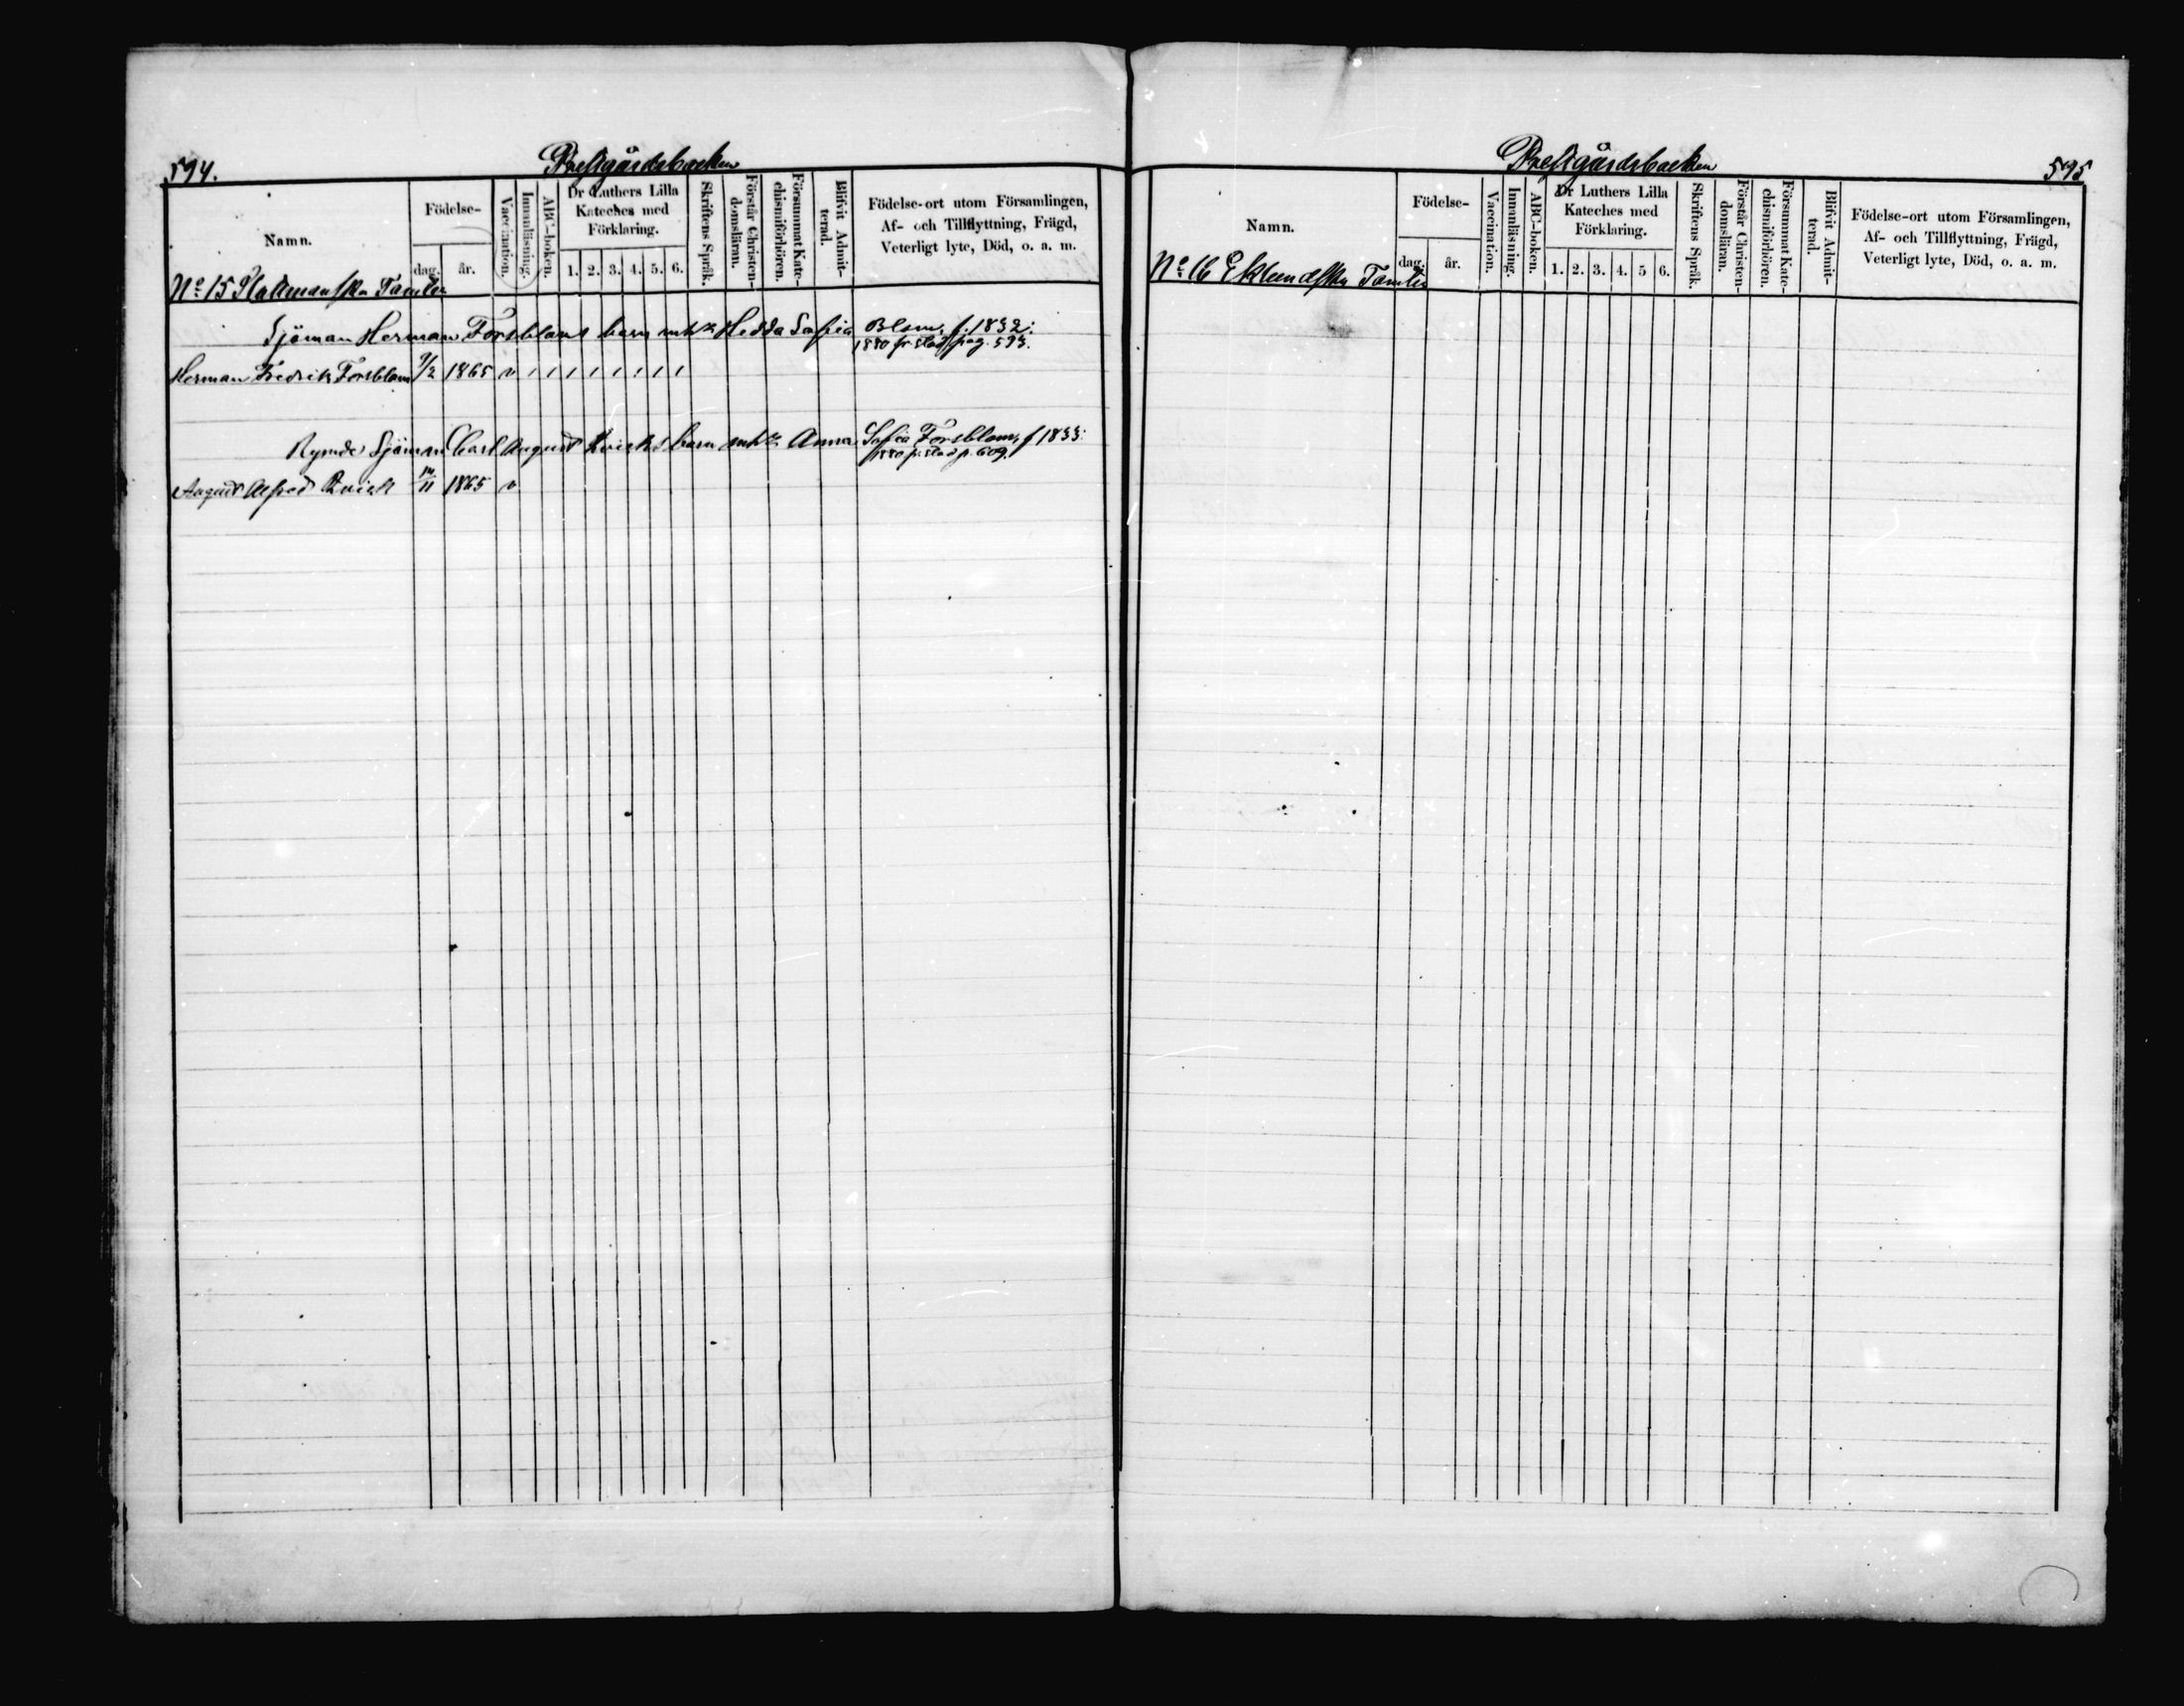 594.
Prestgårdsbacken
Namn.
Födelse-
dag.
år.
Vaccination.
Innanläsning.
ABC-boken.
Dr Luthers Lilla
Kateches med
Förklaring.
1. 2. 3. 4. 5. 6.
Skriftens Språk.
Förstår Christen-
domsläran.
Försummat Kate-
chismiförhören.
Blifvit Admit-
terad.
Födelse-ort utom Församlingen,
Af- och Tillflyttning, Frägd,
Veterligt lyte, Död, o. a. m.
No 15 Familie
Sjöman Herman Forsbloms barn Hedda Sofia Blom, f. 1832:
1880 fr. stad pag. 593.
Herman Fredrik Forsblom 9/2 1865 v
Rymde Sjöman Carl August barn Anna Sofia Forsblom, f 1833:
1880 fr. stad p. 609.
August Alfred 1865 v
Prestgårdsbacken
595
Namn.
Födelse-
dag.
år.
Vaccination.
Innanläsning.
ABC-boken.
Dr Luthers Lilla
Kateches med
Förklaring.
1. 2. 3. 4. 5 6.
Skriftens Språk.
Förstår Christen-
domsläran.
Försummat Kate-
chismiförhören.
Blifvit Admit-
terad.
Födelse-ort utom Församlingen,
Af- och Tillflyttning, Frägd,
Veterligt lyte, Död, o. a. m.
No 16 Eklundska Familie